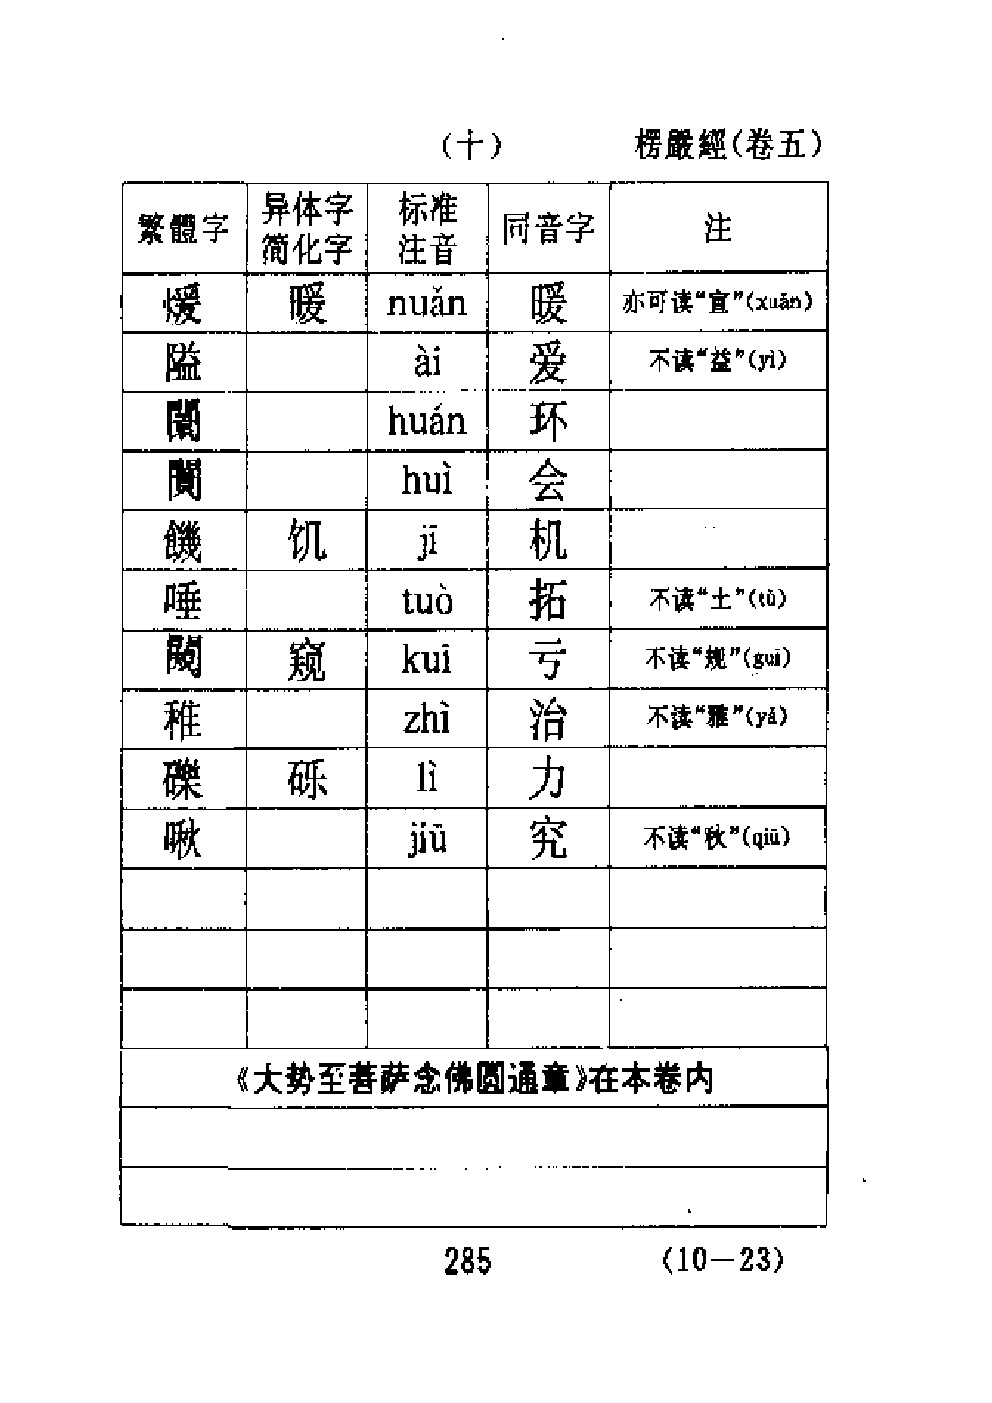 (十) 楞嚴經(卷五)
繁體字 异体字简化字 标准注音 同音字 注
煖 暖 nuǎn 暖 亦可读“宣”(xuān)
隘 ài 爱 不读“益”(yì)
闤 huán 环
闠 huì 会
饑 饥 jī 机
唾 tuò 拓 不读“土”(tǔ)
闚 窥 kuī 亏 不读“规”(guī)
稚 zhì 治 不读“雅”(yǎ)
礫 砾 lì 力
啾 jiū 究 不读“秋”(qiū)
《大势至菩萨念佛圆通章》在本卷内
285 (10-23)